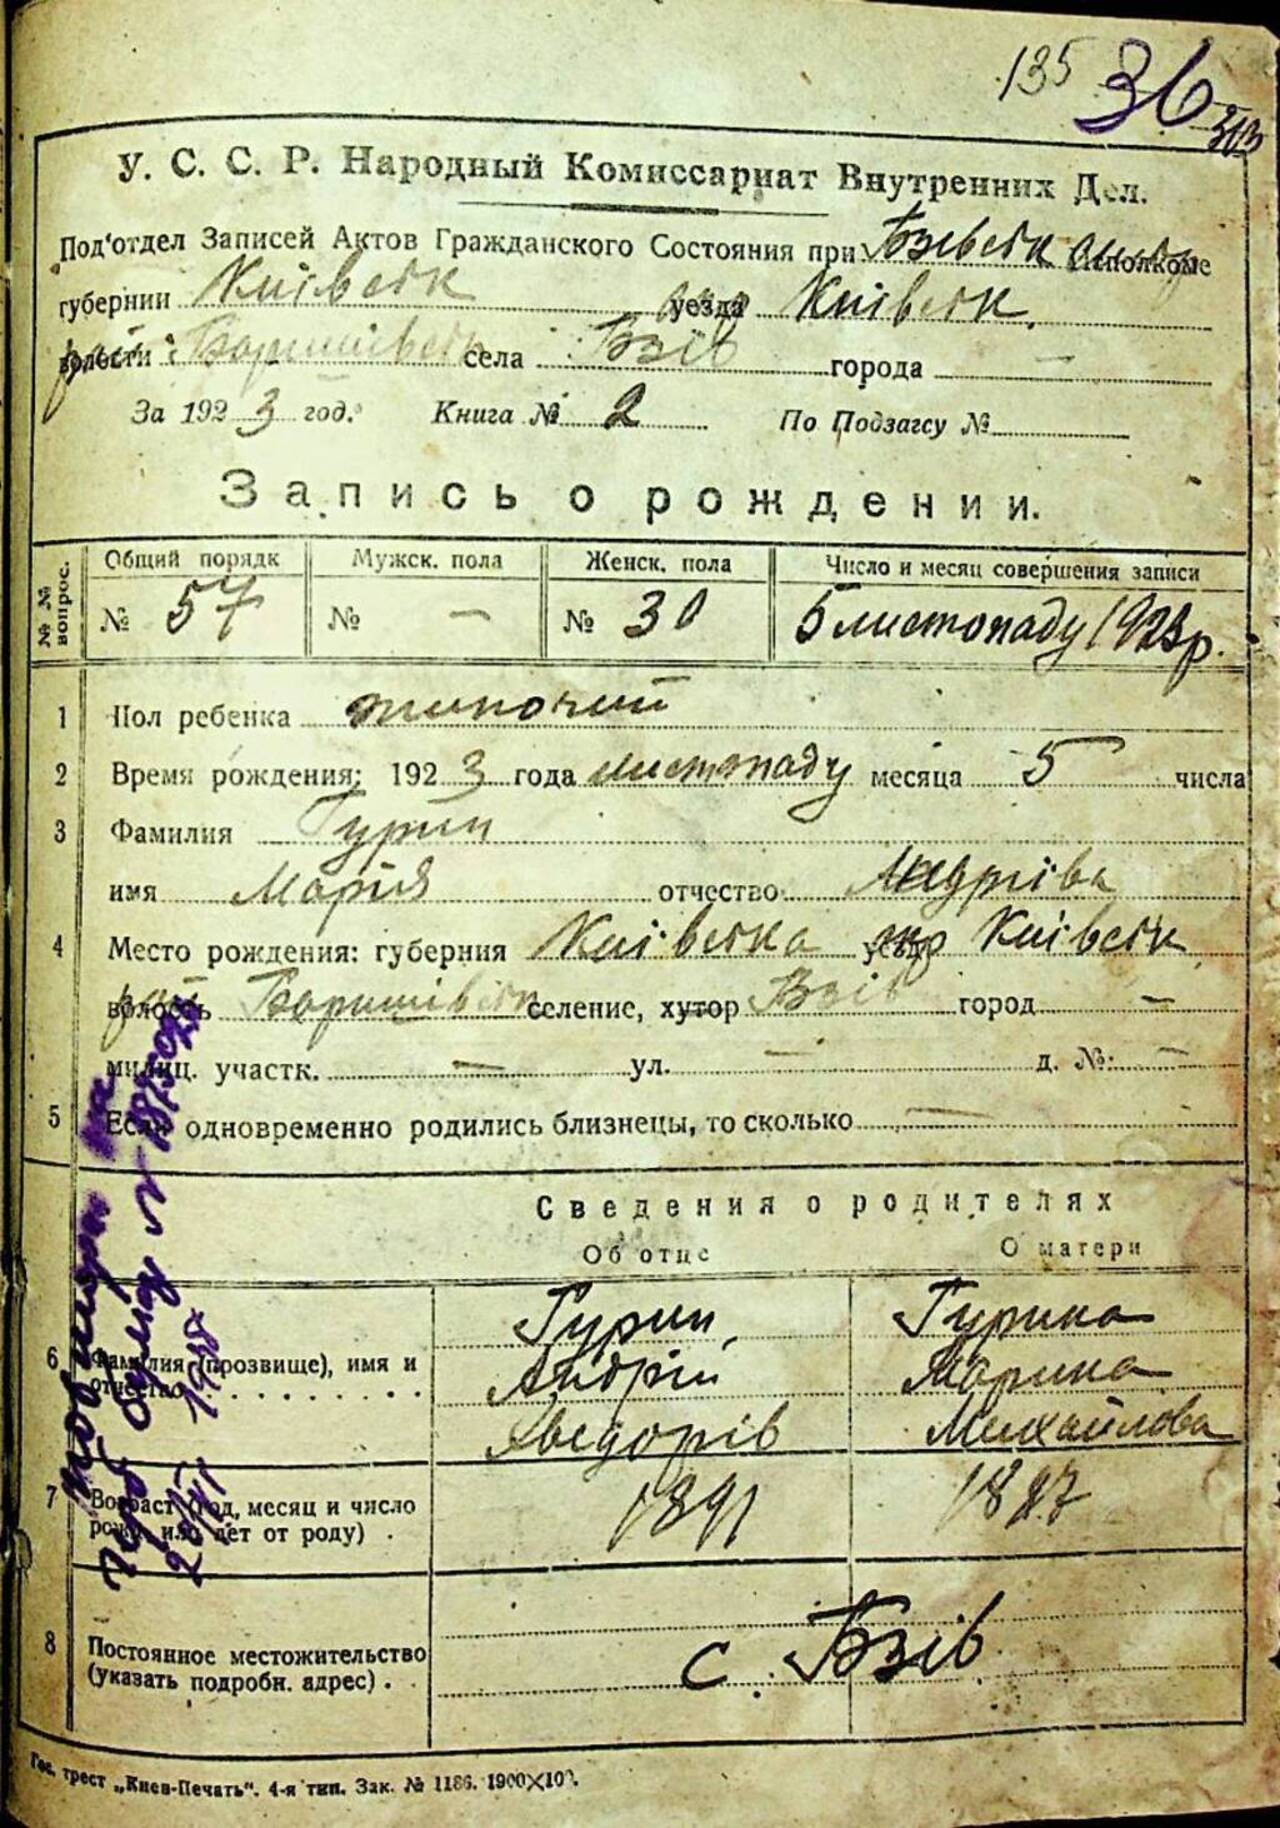 135 36
313
У. С. С. Р. Народный Комиссариат Внутренних Дел.
Под'отдел Записей Актов Гражданского Состояния при Бзівськ Исполкоме
губернии Київськ уезда окр Київськ.
волости рай. Баришівськ села Бзів города —
За 1923 год. Книга № 2 По Подзагсу №
Запись о рождении.
№ № вопрос. Общий порядк Мужск. пола Женск. пола Число и месяц совершения записи
№ 57 № — № 30 5 листопаду 1923 р.
1 Пол ребенка жиночий
2 Время рождения: 1923 года листопаду месяца 5 числа
3 Фамилия Гурин
имя Марія отчество Андріівн
4 Место рождения: губерния Київська уезд окр Київськ
волость рай Баришівськ селение, хутор Бзів город —
милиц. участк. — ул. — д. №: —
5 Если одновременно родились близнецы, то сколько —
Сведения о родителях
Об отце О матери
6 Фамилия (прозвище), имя и отчество
Гурин, Гурина
Андрій Марина
Хведорів Михайлова
7 Возраст (год, месяц и число рожд. или лет от роду) . 1891 1897
8 Постоянное местожительство (указать подробн. адрес) . . с. Бзів
Гос. трест „Киев-Печать". 4-я тип. Зак. № 1186. 1900×100.